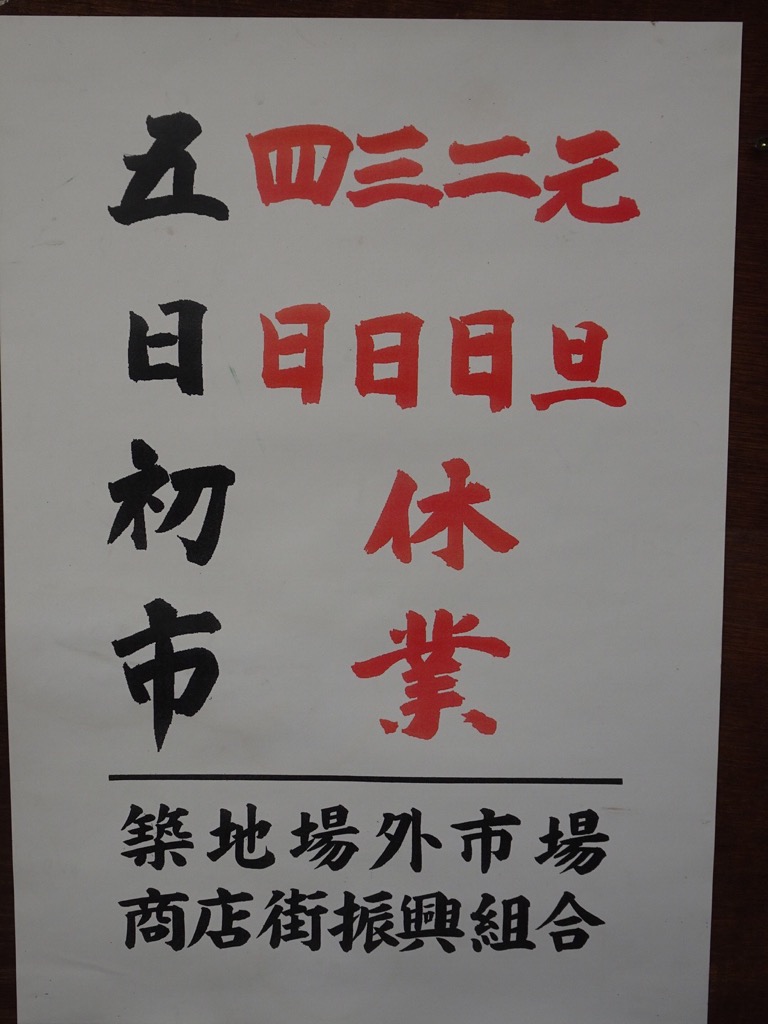 元旦
二日
三日
四日
休業
五日初市
築地場外市場
商店街振興組合